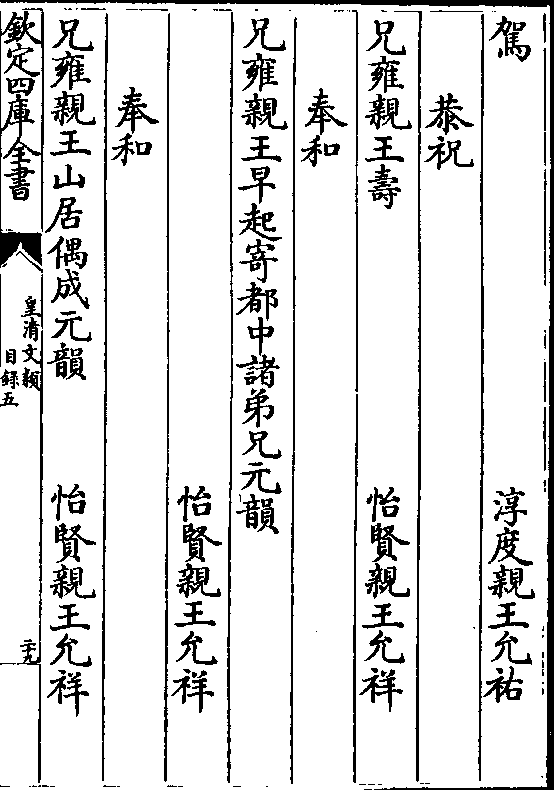 駕　淳度親王允祐
恭祝
兄雍親王壽　怡賢親王允祥
奉和
兄雍親王早起寄都中諸弟兄元韻
怡賢親王允祥
奉和
兄雍親王山居偶成元韻　怡賢親王允祥
欽定四庫全書
皇清文穎
目錄五
二九